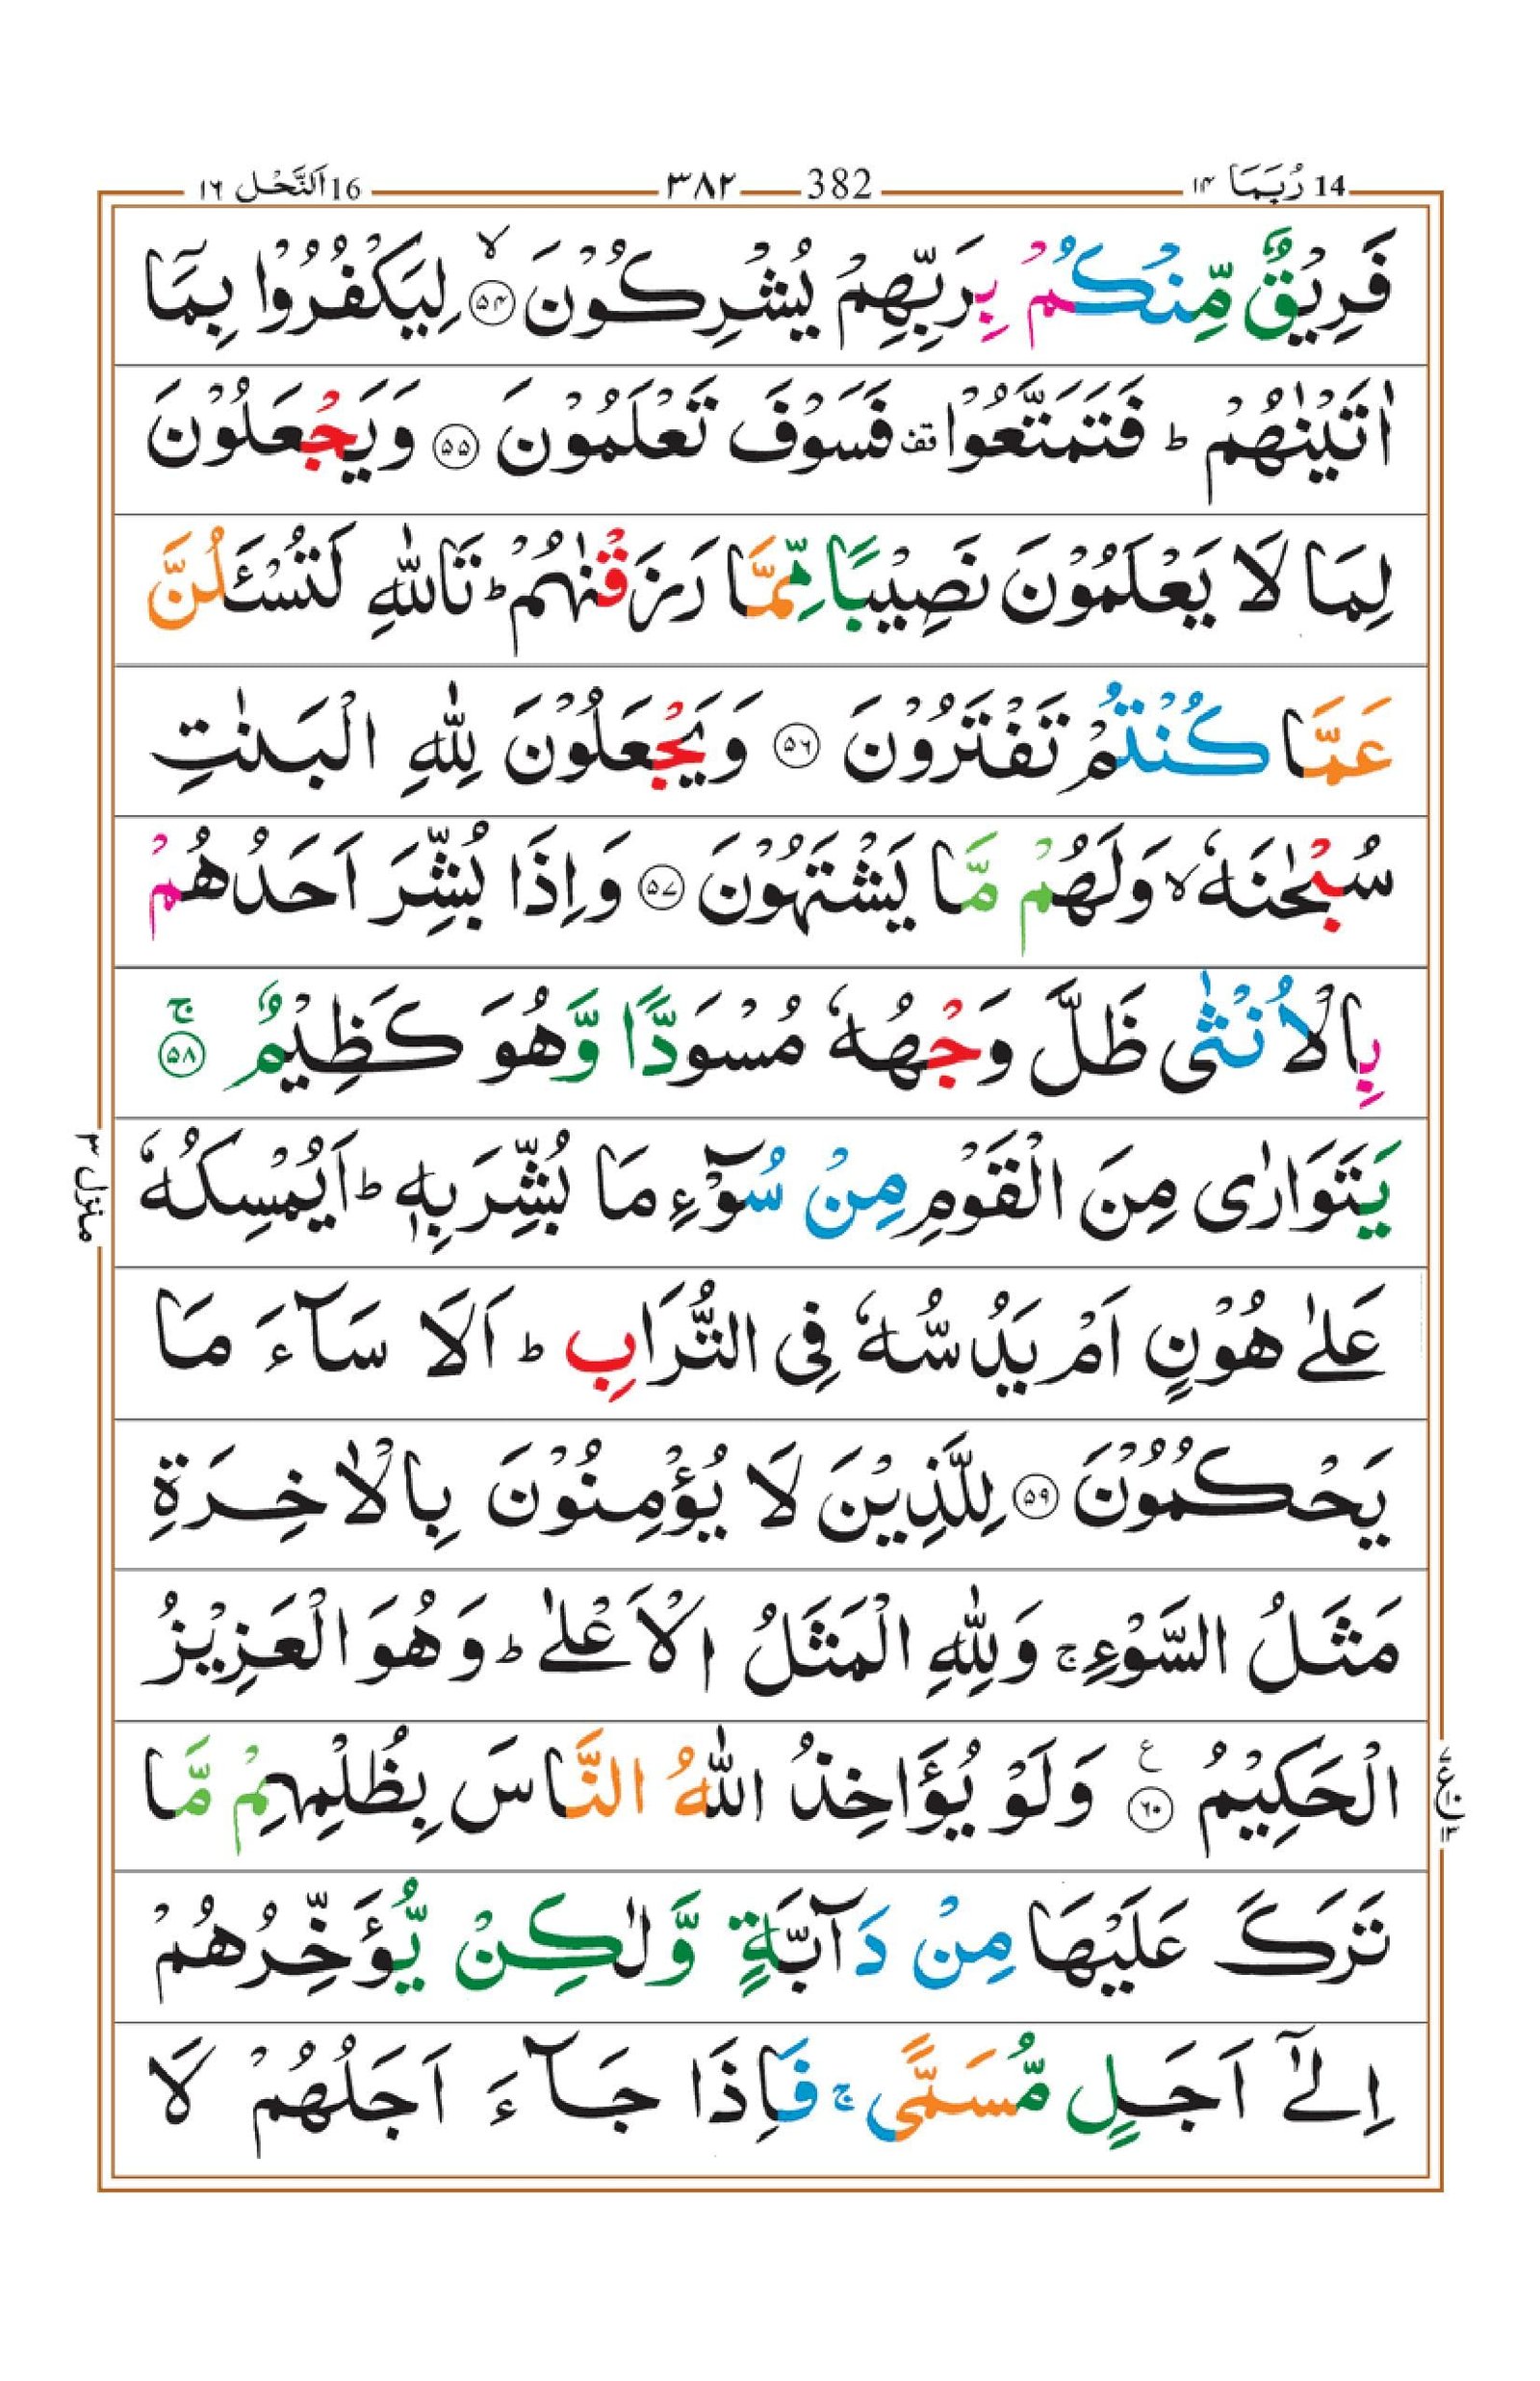 14 رُبَمَا ۱۴
382 ۳۸۲
16 اَلنَّحْل ۱۶
فَرِيْقٌ مِّنْكُمْ بِرَبِّهِمْ يُشْرِكُوْنَ ﴿۵۴﴾ۙ لِيَكْفُرُوْا بِمَاۤ
اٰتَيْنٰهُمْ ؕ فَتَمَتَّعُوْا قف فَسَوْفَ تَعْلَمُوْنَ ﴿۵۵﴾ وَيَجْعَلُوْنَ
لِمَا لَا يَعْلَمُوْنَ نَصِيْبًا مِّمَّا رَزَقْنٰهُمْ ؕ تَاللّٰهِ لَتُسْـَٔلُنَّ
عَمَّا كُنْتُمْ تَفْتَرُوْنَ ﴿۵۶﴾ وَيَجْعَلُوْنَ لِلّٰهِ الْبَنٰتِ
سُبْحٰنَهٗ ۙ وَلَهُمْ مَّا يَشْتَهُوْنَ ﴿۵۷﴾ وَاِذَا بُشِّرَ اَحَدُهُمْ
بِالْاُنْثٰى ظَلَّ وَجْهُهٗ مُسْوَدًّا وَّهُوَ كَظِيْمٌ ﴿۵۸﴾ۚ
يَتَوَارٰى مِنَ الْقَوْمِ مِنْ سُوْٓءِ مَا بُشِّرَ بِهٖ ؕ اَيُمْسِكُهٗ
عَلٰى هُوْنٍ اَمْ يَدُسُّهٗ فِى التُّرَابِ ؕ اَلَا سَآءَ مَا
يَحْكُمُوْنَ ﴿۵۹﴾ لِلَّذِيْنَ لَا يُؤْمِنُوْنَ بِالْاٰخِرَةِ
مَثَلُ السَّوْءِ ۚ وَلِلّٰهِ الْمَثَلُ الْاَعْلٰى ؕ وَهُوَ الْعَزِيْزُ
الْحَكِيْمُ ﴿۶۰﴾ ع وَلَوْ يُؤَاخِذُ اللّٰهُ النَّاسَ بِظُلْمِهِمْ مَّا
تَرَكَ عَلَيْهَا مِنْ دَآبَّةٍ وَّلٰكِنْ يُّؤَخِّرُهُمْ
اِلٰٓى اَجَلٍ مُّسَمًّى ۚ فَاِذَا جَآءَ اَجَلُهُمْ لَا
منزل ۳
ع ۷ ۱۰ ۱۳